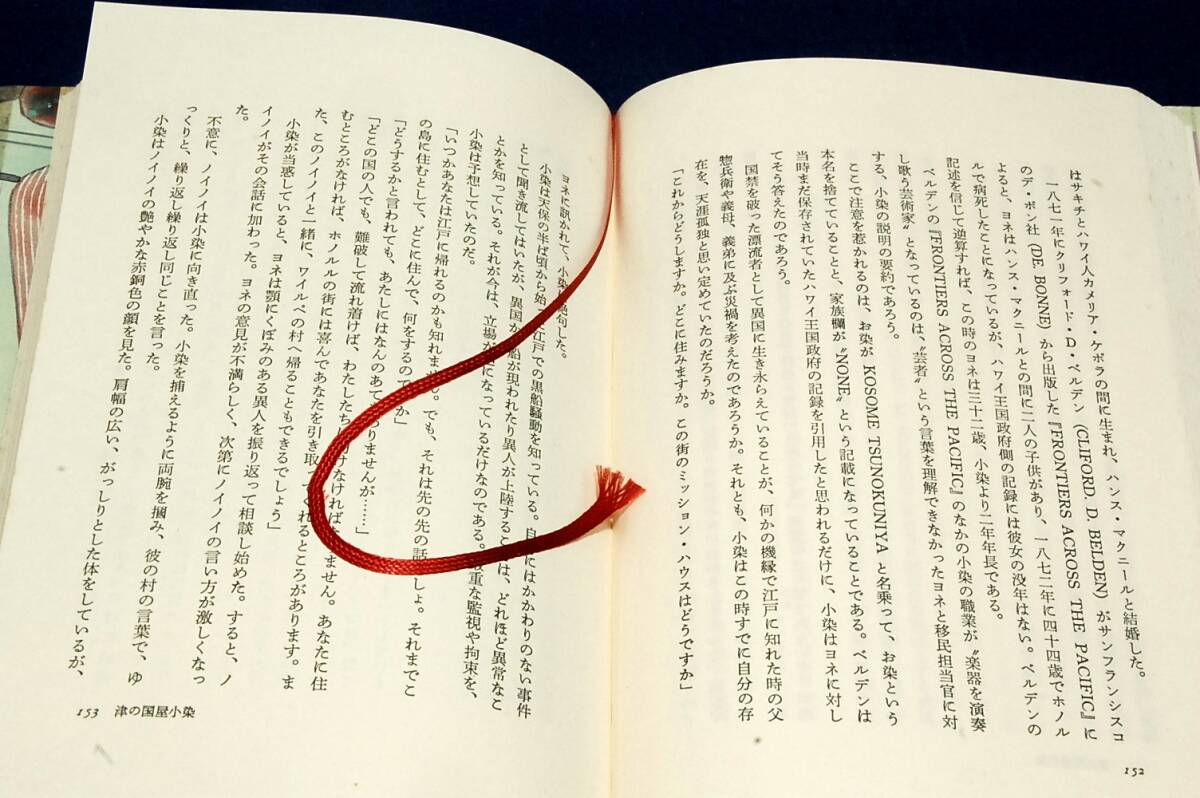 はサキチとハワイ人カメリア・ケポラの間に生まれ、ハンス・マクニールと結婚した。
一八七一年にクリフォード・D・ベルデン (CLIFORD. D. BELDEN) がサンフランシスコ
のデ・ボン社 (DE. BONNE) から出版した『FRONTIERS ACROSS THE PACIFIC』に
よると、ヨネはハンス・マクニールとの間に二人の子供があり、一八七二年に四十四歳でホノル
ルで病死したことになっているが、ハワイ王国政府側の記録には彼女の没年はない。ベルデンの
記述を信じて逆算すれば、この時のヨネは三十二歳、小染より二年年長である。
ベルデンの『FRONTIERS ACROSS THE PACIFIC』のなかの小染の職業が〝楽器を演奏
し歌う芸術家〟となっているのは、〝芸者〟という言葉を理解できなかったヨネと移民担当官に対
する、小染の説明の要約であろう。
ここで注意を惹かれるのは、お染が KOSOME TSUNOKUNIYA と名乗って、お染という
本名を捨てていることと、家族欄が〝NONE〟という記載になっていることである。ベルデンは
当時まだ保存されていたハワイ王国政府の記録を引用したと思われるだけに、小染はヨネに対し
てそう答えたのであろう。
国禁を破った漂流者として異国に生き永らえていることが、何かの機縁で江戸に知れた時の父
惣兵衛や義母、義弟に及ぶ災禍を考えたのであろうか。それとも、小染はこの時すでに自分の存
在を、天涯孤独と思い定めていたのだろうか。
「これからどうしますか。どこに住みますか。この街のミッション・ハウスはどうですか」
152
ヨネに訊かれて、小染は絶句した。
小染は天保の半ば頃から始 江戸での黒船騒動を知っている。自 にはかかわりのない事件
として聞き流してはいたが、異国か 船が現われたり異人が上陸するこ は、どれほど異常なこ
とかを知っている。それが今は、立場が になっているだけなのである。 重な監視や拘束を、
小染は予想していたのだ。
「いつかあなたは江戸に帰れるのかも知れませ 。でも、それは先の先の話 しょ。それまでこ
の島に住むとして、どこに住んで、何をするので か」
「どうするかと言われても、あたしにはなんのあて りませんが……」
「どこの国の人でも、難破して流れ着けば、わたしたち けなければな ません。あなたに住
むところがなければ、ホノルルの街には喜んであなたを引き取 くれるところがあります。ま
た、このノイノイと一緒に、ワイルペの村へ帰ることもできるでしょう」
小染が当惑していると、ヨネは顎にくぼみのある異人を振り返って相談し始めた。すると、ノ
イノイがその会話に加わった。ヨネの意見が不満らしく、次第にノイノイの言い方が激しくなっ
た。
不意に、ノイノイは小染に向き直った。小染を捕えるように両腕を摑み、彼の村の言葉で、ゆ
っくりと、繰り返し繰り返し同じことを言った。
小染はノイノイの艶やかな赤銅色の顔を見た。肩幅の広い、がっしりとした体をしているが、
153 津の国屋小染